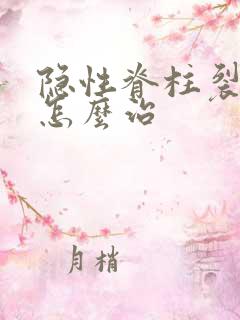 隐性脊柱裂
怎麼治
月梢